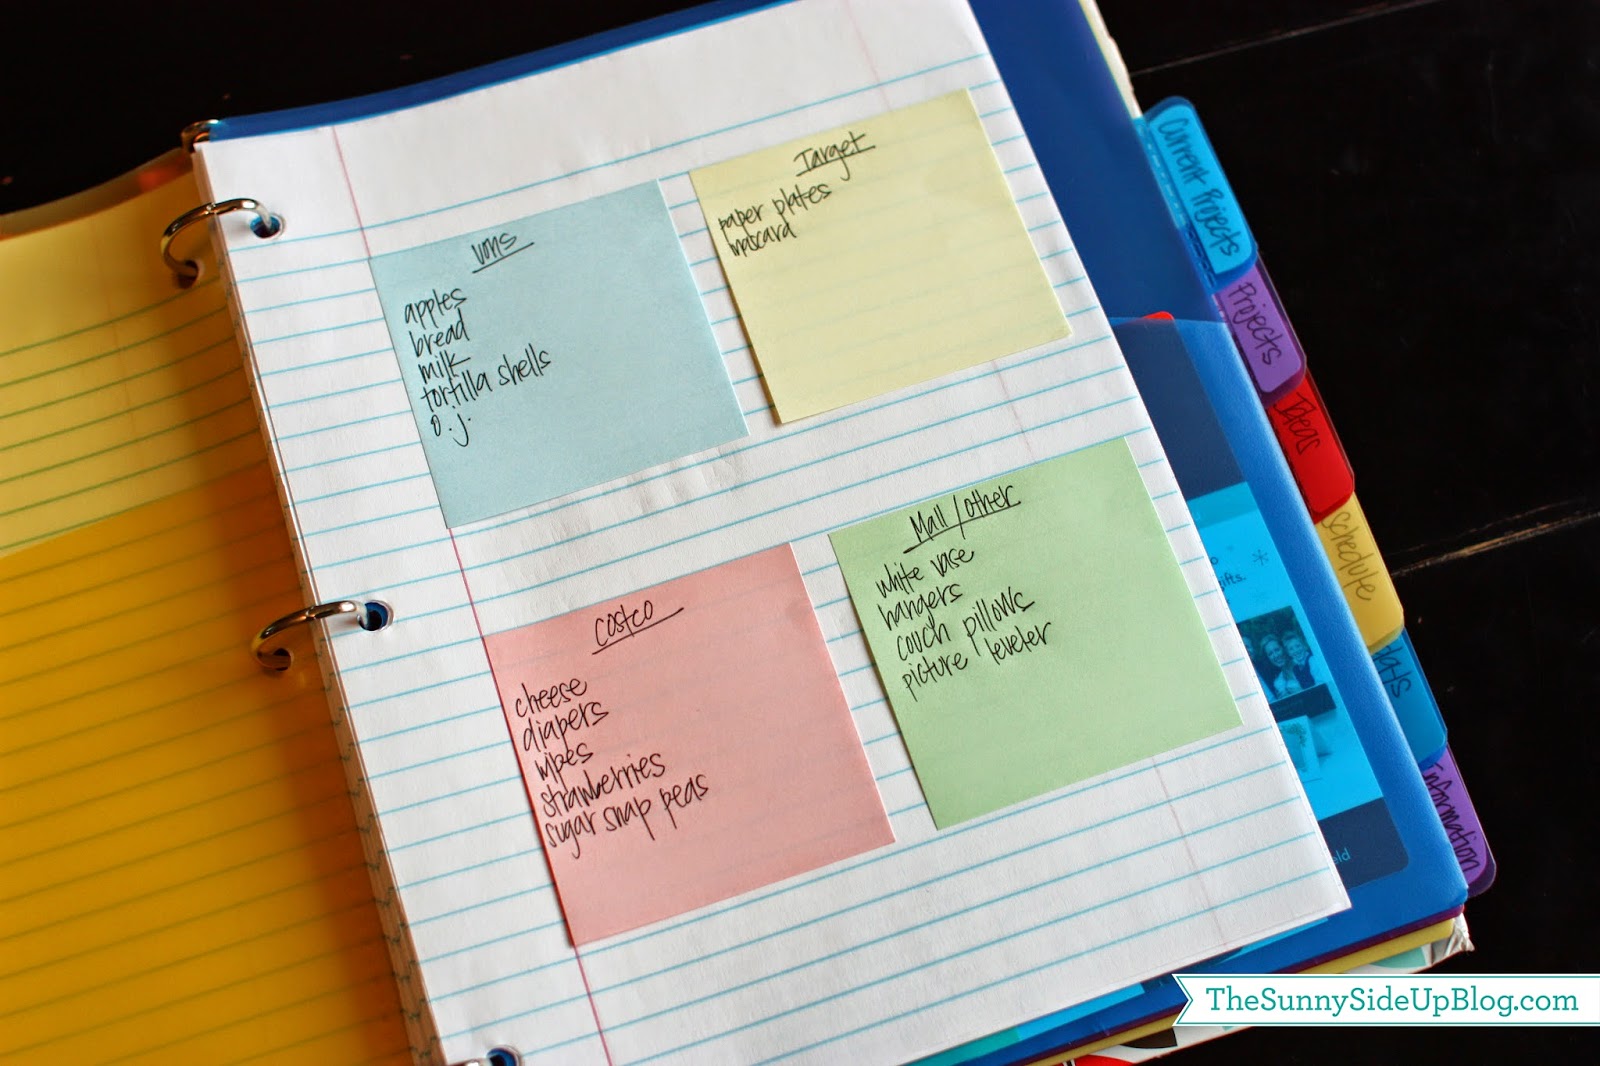 Vons
apples
bread
milk
tortilla shells
o.j.
Target
paper plates
mascara
Costco
cheese
diapers
wipes
strawberries
sugar snap peas
Mall/other
white vase
hangers
couch pillows
picture leveler
Current Projects
Projects
Ideas
Schedule
Information
TheSunnySideUpBlog.com